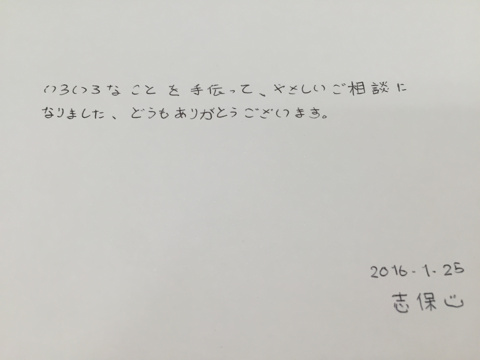 いろいろなことを手伝って、やさしいご相談に
なりました、どうもありがとうございます。
2016.1.25
志保心